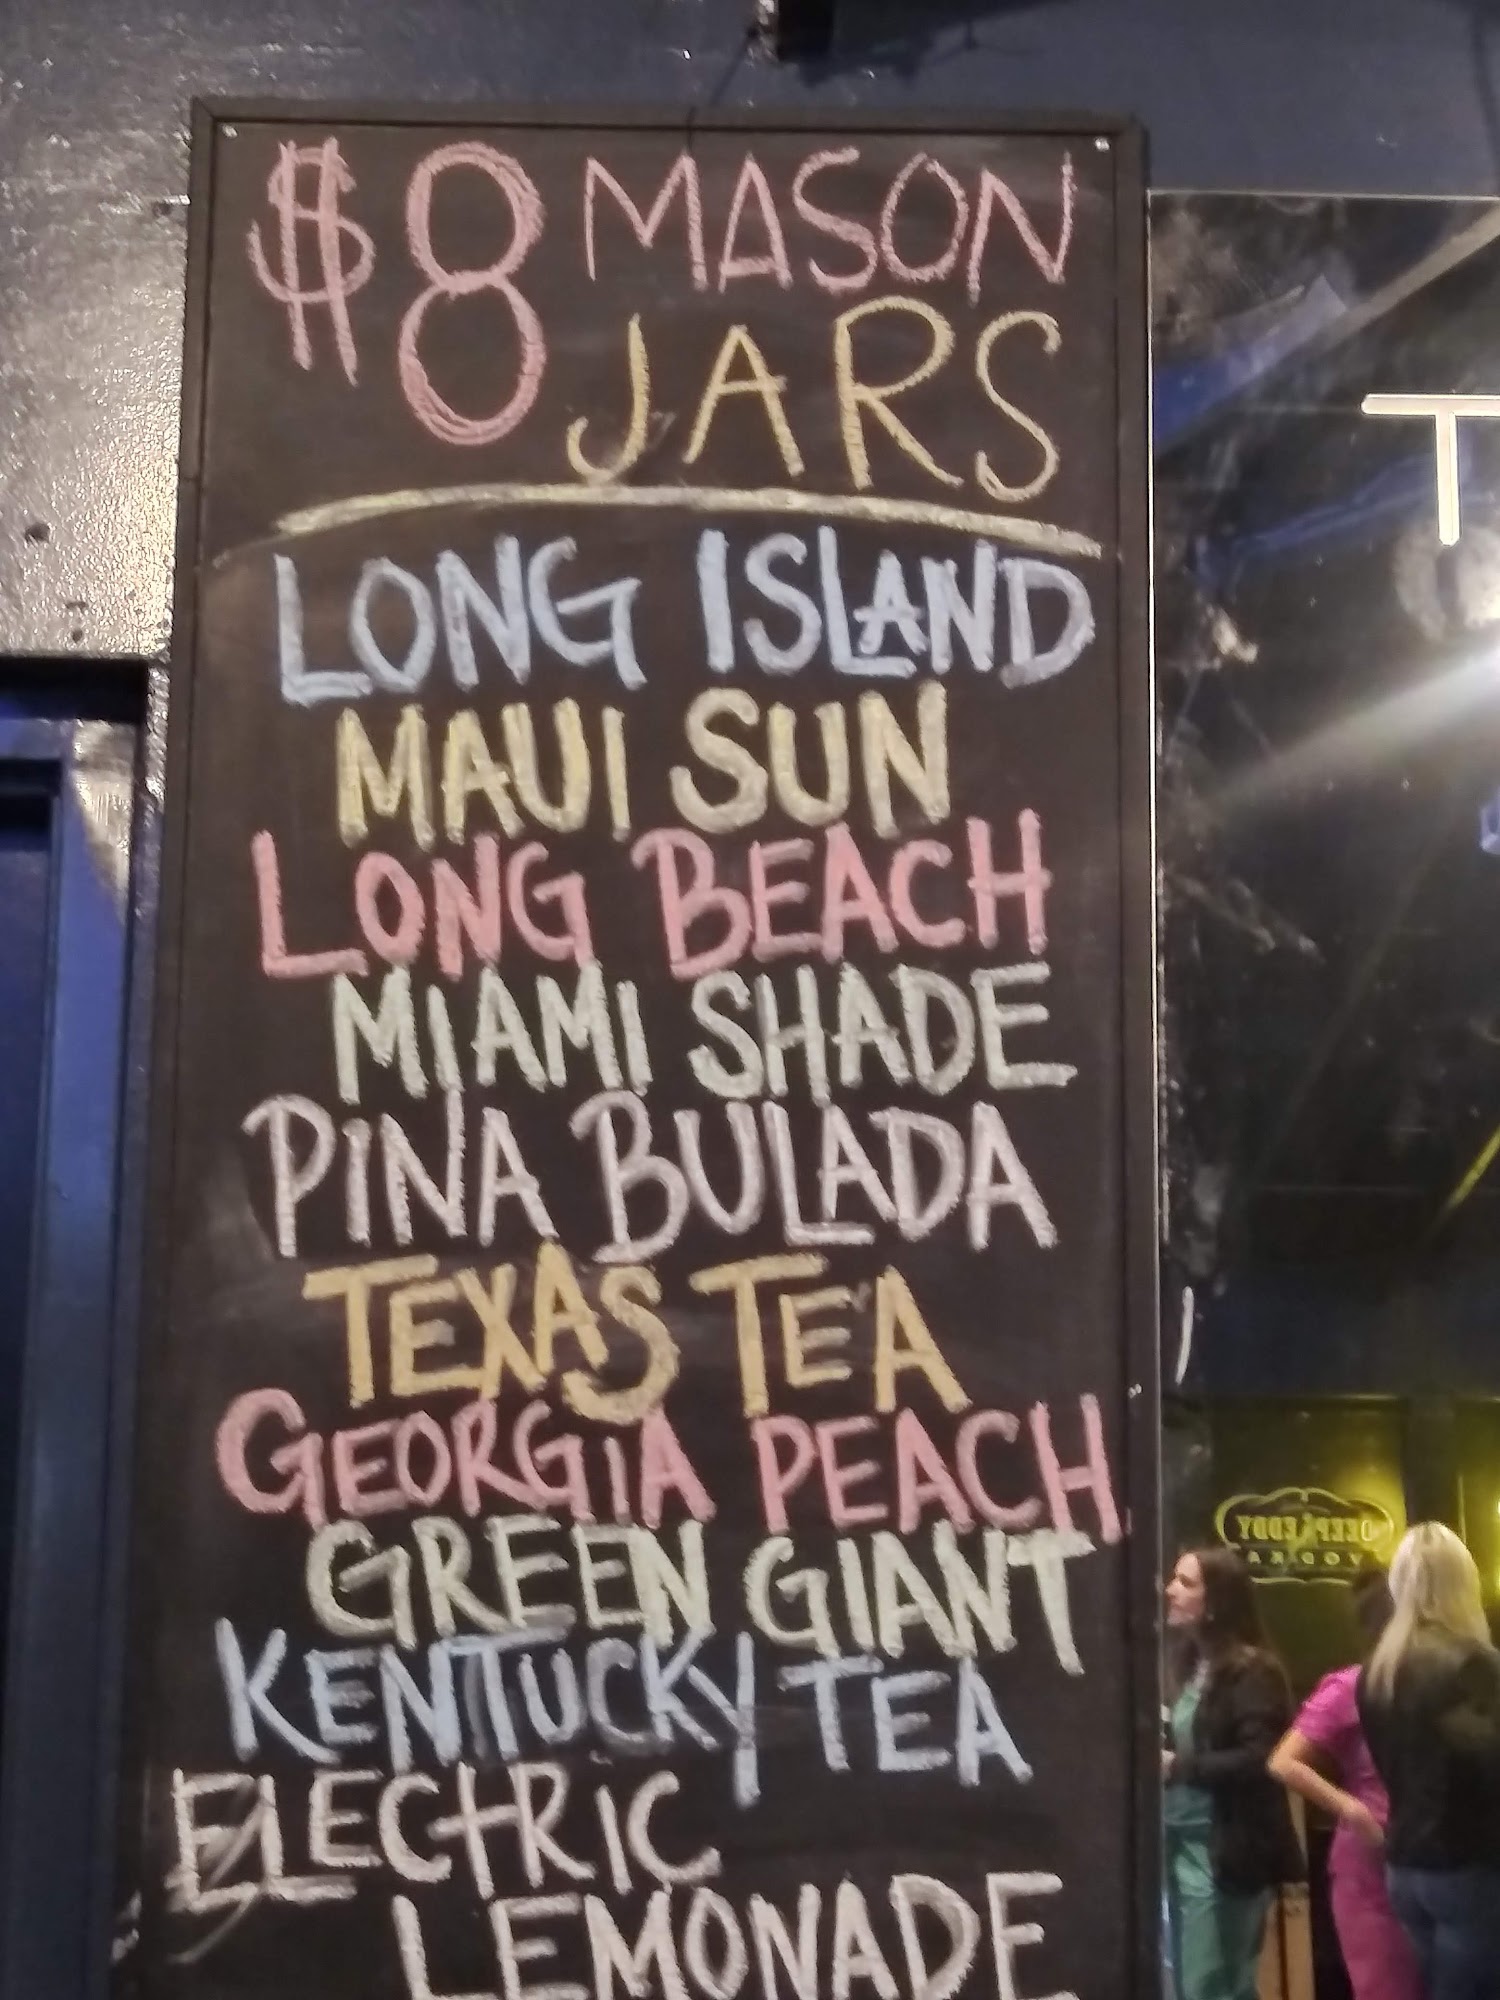 $8 MASON
JARS
LONG ISLAND
MAUI SUN
LONG BEACH
MIAMI SHADE
PINA BULADA
TEXAS TEA
GEORGIA PEACH
GREEN GIANT
KENTUCKY TEA
ELECTRIC
LEMONADE
T
DEEP EDDY
VODKA